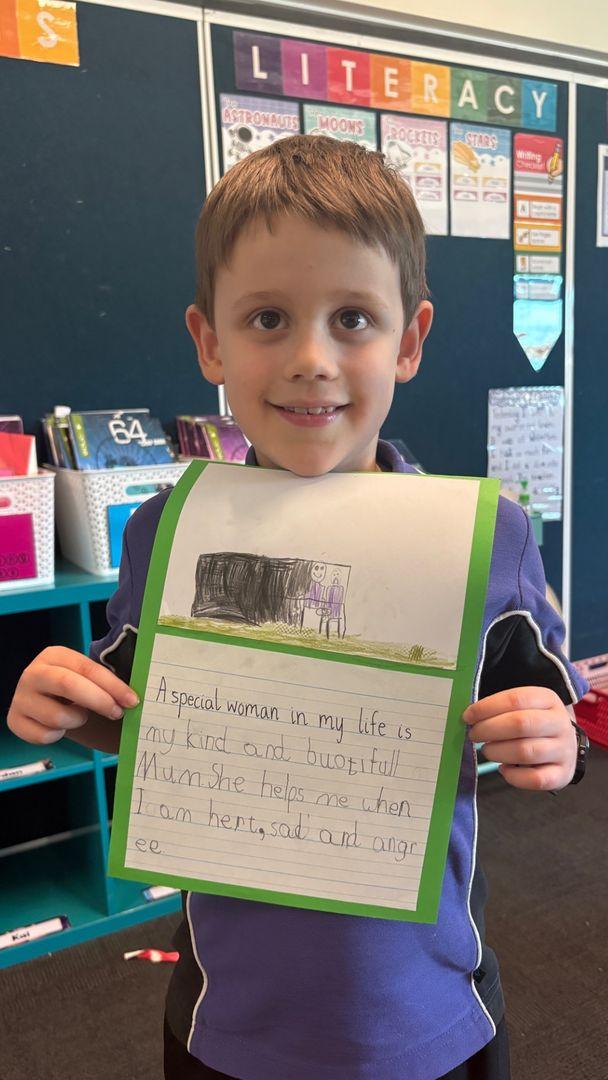 S
LITERACY
ASTRONAUTS
MOONS
ROCKETS
STARS
Writing
Checklist
64
A special woman in my life is
my kind and buotifull
Mum. She helps me when
I am hert, sad and angr
ee.